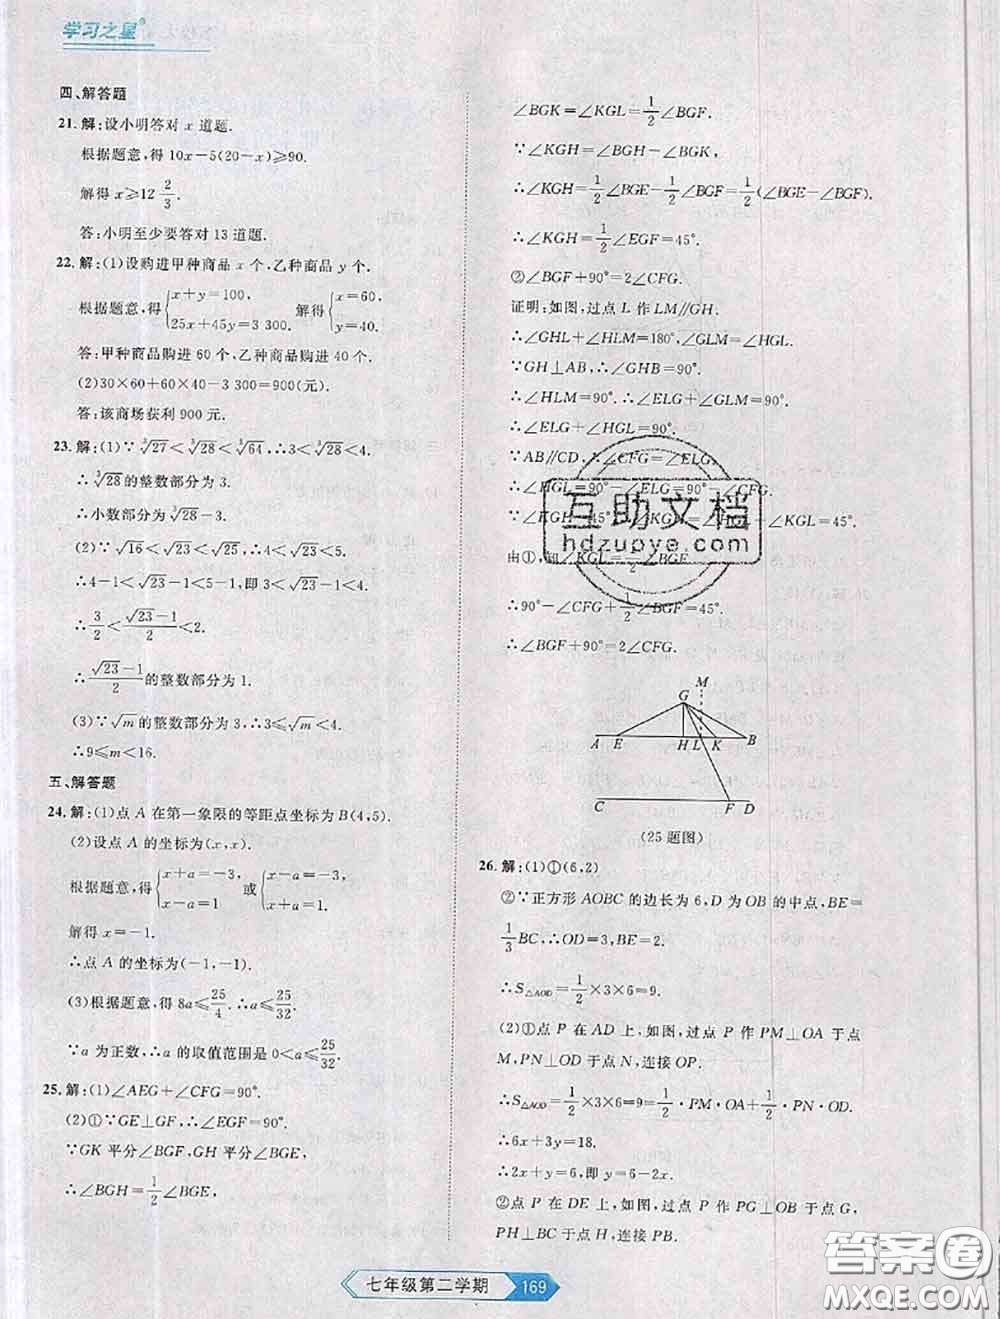 学习之星®
四、解答题
21.解:设小明答对 x 道题.
根据题意,得 10x-5(20-x)≥90.
解得 x≥12 2/3.
答:小明至少要答对 13 道题.
22.解:(1)设购进甲种商品 x 个,乙种商品 y 个.
根据题意,得{x+y=100, 25x+45y=3 300. 解得{x=60, y=40.
答:甲种商品购进 60 个,乙种商品购进 40 个.
(2)30×60+60×40-3 300=900(元).
答:该商场获利 900 元.
23.解:(1)∵∛27<∛28<∛64,∴3<∛28<4.
∴∛28的整数部分为 3.
∴小数部分为∛28-3.
(2)∵√16<√23<√25,∴4<√23<5.
∴4-1<√23-1<5-1,即 3<√23-1<4.
∴3/2<(√23-1)/2<2.
∴(√23-1)/2的整数部分为 1.
(3)∵√m的整数部分为 3,∴3≤√m<4.
∴9≤m<16.
五、解答题
24.解:(1)点 A 在第一象限的等距点坐标为 B(4,5).
(2)设点 A 的坐标为(x,x).
根据题意,得{x+a=-3, x-a=1 或{x-a=-3, x+a=1.
解得 x=-1.
∴点 A 的坐标为(-1,-1).
(3)根据题意,得 8a≤25/4.∴a≤25/32.
∵a 为正数,∴a 的取值范围是 0<a≤25/32.
25.解:(1)∠AEG+∠CFG=90°.
(2)①∵GE⊥GF,∴∠EGF=90°.
∵GK 平分∠BGF,GH 平分∠BGE,
∴∠BGH=1/2∠BGE,
∠BGK=∠KGL=1/2∠BGF.
∵∠KGH=∠BGH-∠BGK,
∴∠KGH=1/2∠BGE-1/2∠BGF=1/2(∠BGE-∠BGF).
∴∠KGH=1/2∠EGF=45°.
②∠BGF+90°=2∠CFG.
证明:如图,过点 L 作 LM∥GH.
∴∠GHL+∠HLM=180°,∠GLM=∠HGL.
∵GH⊥AB,∴∠GHB=90°.
∴∠HLM=90°.∴∠ELG+∠GLM=90°.
∴∠ELG+∠HGL=90°.
∵AB∥CD,∴∠CFG=∠ELG.
∴∠HGL=90°-∠ELG=90°-∠CFG.
∵∠KGH=45°,∴∠HGL+∠KGL=45°.
由①,知∠KGL=1/2∠BGF.
∴90°-∠CFG+1/2∠BGF=45°.
∴∠BGF+90°=2∠CFG.
互助文档
hdzuoye.com
M
G
A E H L K B
C F D
(25 题图)
26.解:(1)①(6,2)
②∵正方形 AOBC 的边长为 6,D 为 OB 的中点,BE=
1/3BC,∴OD=3,BE=2.
∴S△AOD=1/2×3×6=9.
(2)①点 P 在 AD 上,如图,过点 P 作 PM⊥OA 于点
M,PN⊥OD 于点 N,连接 OP.
∴S△AOD=1/2×3×6=9=1/2·PM·OA+1/2·PN·OD.
∴6x+3y=18.
∴2x+y=6,即 y=6-2x.
②点 P 在 DE 上,如图,过点 P 作 PG⊥OB 于点 G,
PH⊥BC 于点 H,连接 PB.
七年级第二学期 169
答案圈
MXQE.COM